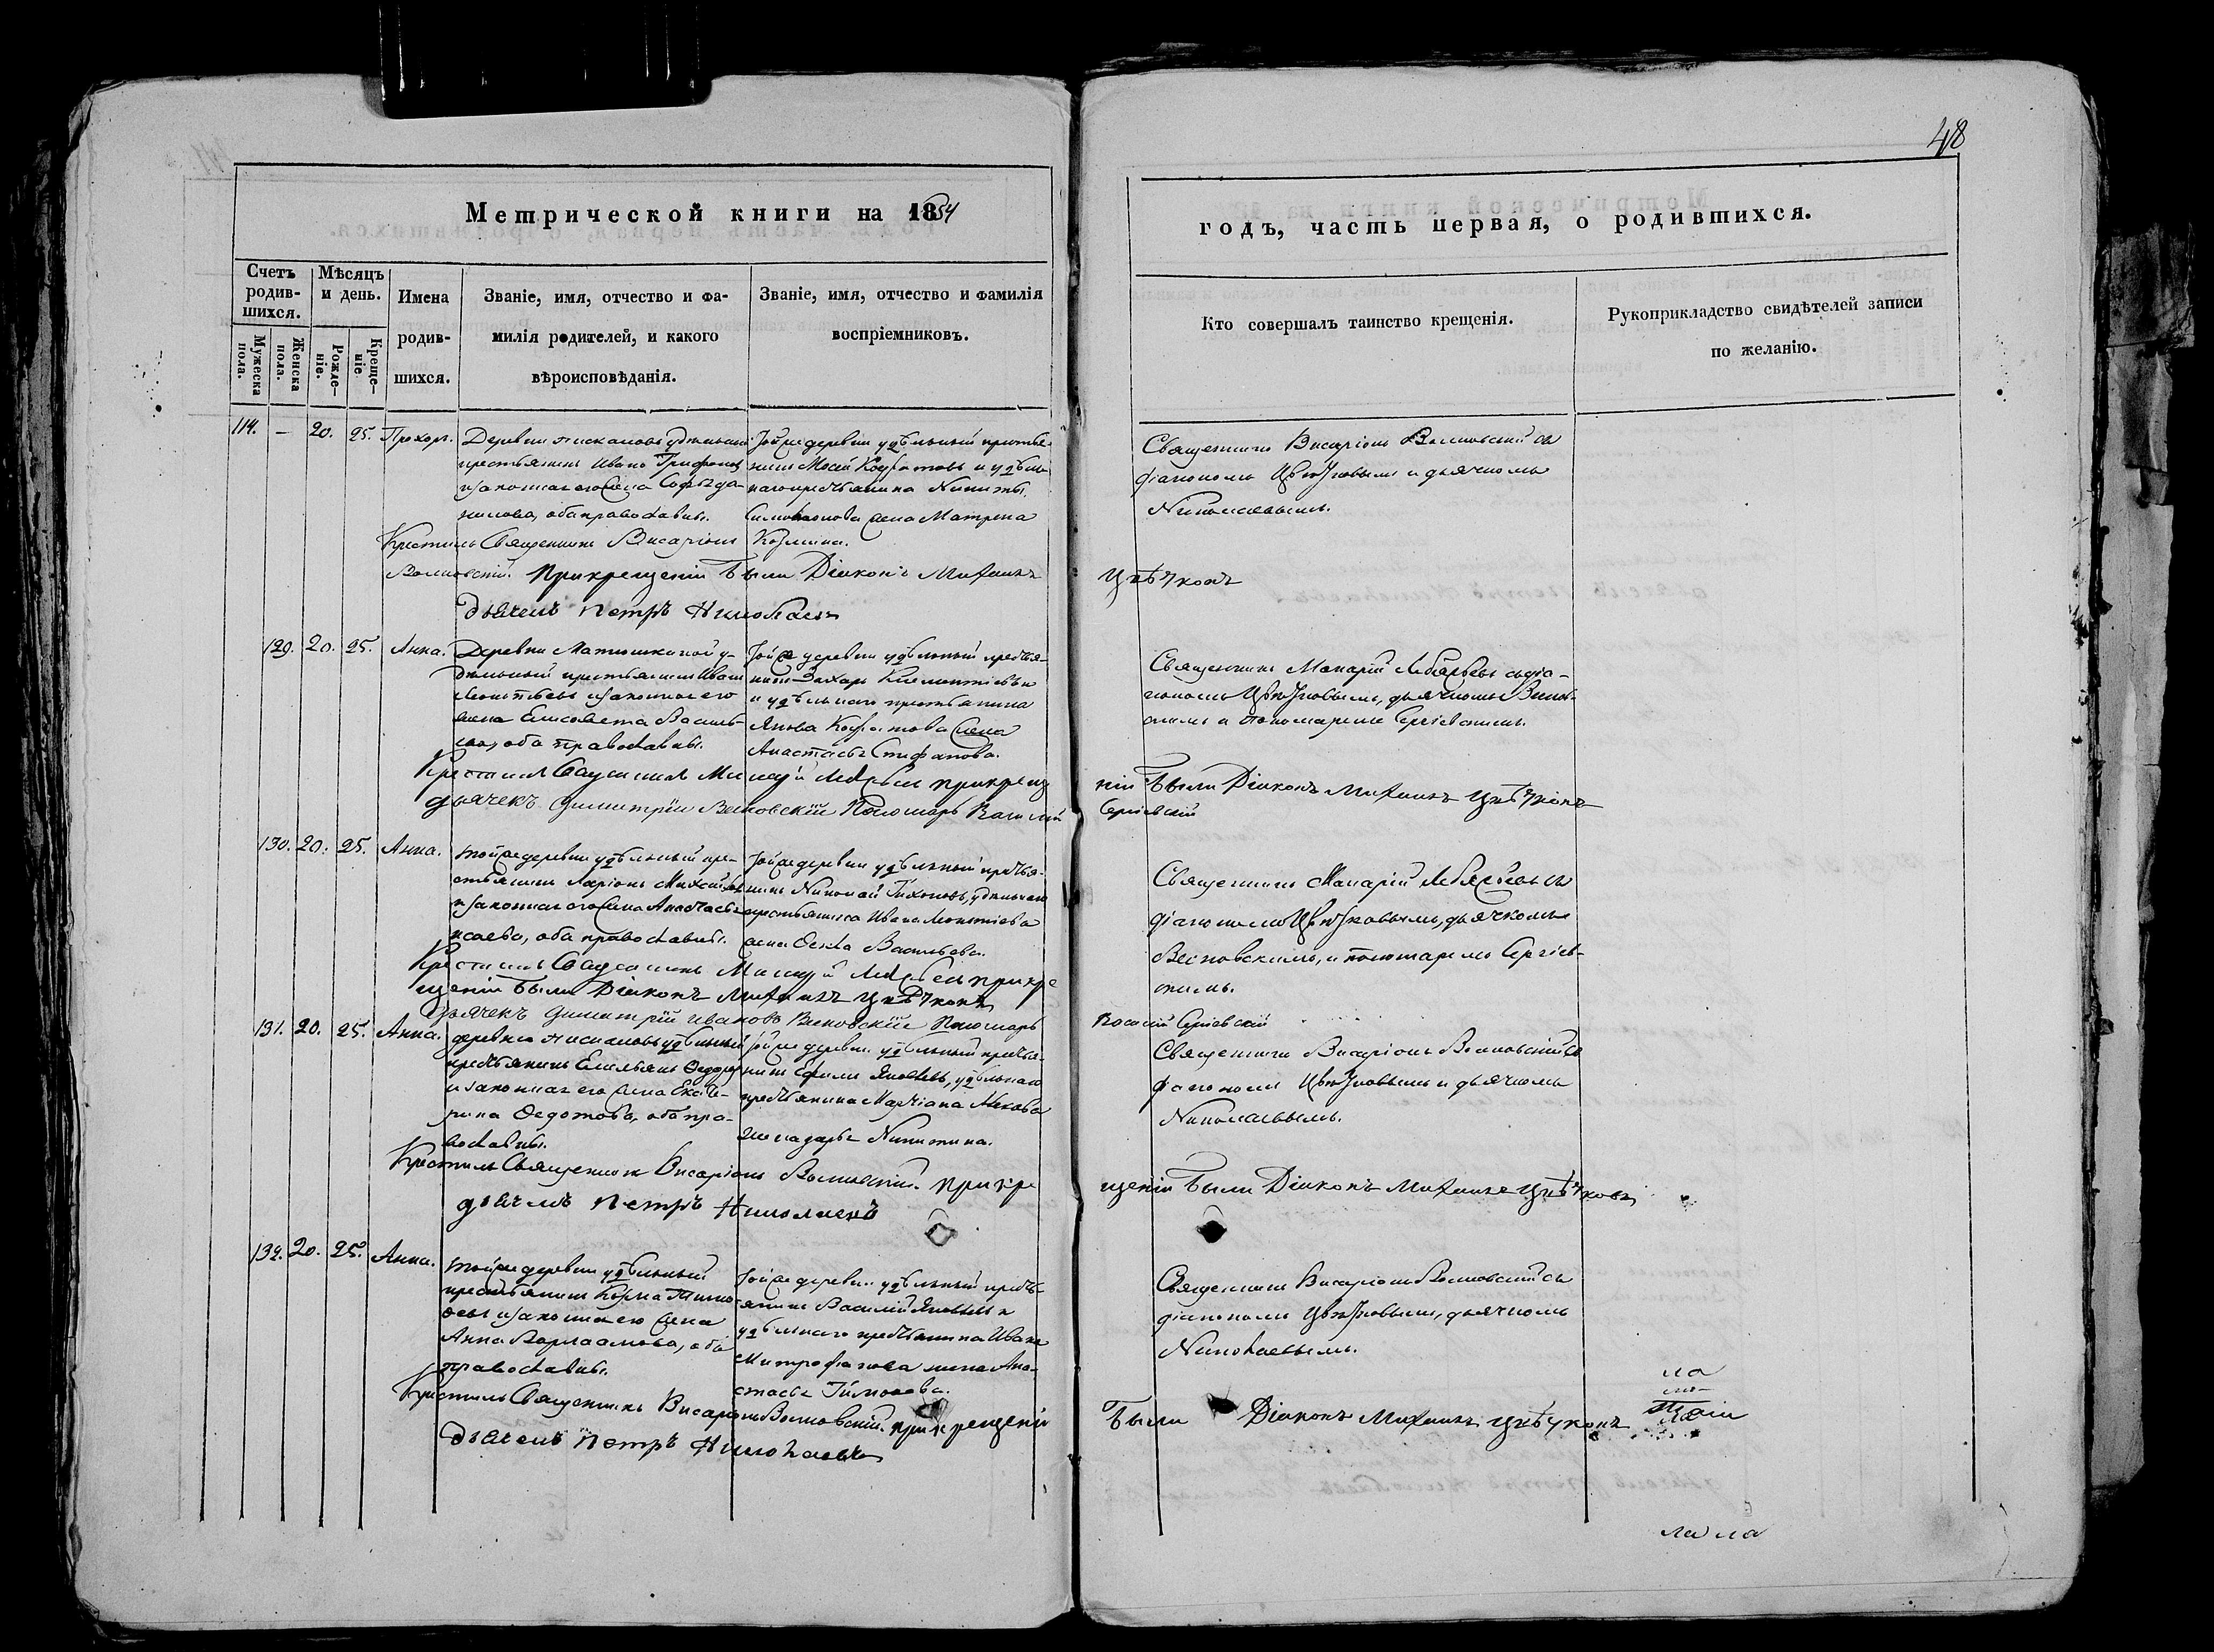 48
Метрической книги на 1854
годъ, часть первая, о родившихся.
Счетъ родив-шихся.
Мѣсяцъ и день.
Мужеска пола.
Женска пола.
Рожде-ніе.
Креще-ніе
Имена
родив-
шихся.
Званіе, имя, отчество и фа-
милія родителей, и какого
вѣроисповѣданія.
Званіе, имя, отчество и фамилія
воспріемниковъ.
Кто совершалъ таинство крещенія.
Рукоприкладство свидѣтелей записи
по желанію.
114. – 20. 25. Прохоръ.
Деревни
крестьянинъ Иванъ Трифоновъ
и законная его жена Софья Да-
нилова, оба православны.
Тойже деревни удѣльный крестья-
нинъ и удѣль-
наго крестьянина Никиты
жена Матрена
Козмина.
Священникъ Висаріонъ съ
діакономъ Цвѣтковымъ и дьячкомъ
Николаевымъ.
Крестилъ Священникъ Висаріонъ
При крещеніи были Діаконъ Михаилъ
Цвѣтковъ
дьячекъ Петръ Николаевъ
129. 20. 25. Анна.
Деревни Матюшкиной у-
дѣльный крестьянинъ Иванъ
Леонтьевъ и законная его
жена Елисавета Василь-
ева, оба православны.
Тойже деревни удѣльный крестья-
нинъ Захаръ Климентіевъ и
и удѣльнаго крестьянина
Якова жена
Анастасья Стефанова.
Священникъ Макарій съ діа-
кономъ Цвѣтковымъ, дьячкомъ
и пономаремъ Сергіевскимъ.
Крестилъ Священникъ Макарій при крещ
ніи были Діаконъ Михаилъ Цвѣтковъ
дьячекъ Димитрій Пономарь Василій
Сергіевскій
130. 20. 25. Анна.
Тойже деревни удѣльный кре-
стьянинъ Ларіонъ Михайловъ
и законная его жена Анастасья
Исаева, оба православны.
Тойже деревни удѣльный крестья-
нинъ Николай Тихоновъ, удѣльнаго
крестьянина Ивана Леонтіева
жена Ѳекла Васильева.
Священникъ Макарій съ
діакономъ Цвѣтковымъ, дьячкомъ
и пономаремъ Сергіев-
скимъ.
Крестилъ Священникъ Макарій при кре
щеніи были Діаконъ Михаилъ Цвѣтковъ
дьячекъ Димитрій Ивановъ Пономарь
Василій Сергіевскій
131. 20. 25. Анна.
деревни удѣльный
крестьянинъ Емельянъ Ѳедоровъ
и законная его жена Екате-
рина Ѳедотова, оба пра-
вославны.
Тойже деревни удѣльный крестья-
нинъ Ефимъ Яковлевъ, удѣльнаго
крестьянина
жена Дарья Никитина.
Священникъ Висаріонъ съ
діакономъ Цвѣтковымъ и дьячкомъ
Николаевымъ.
Крестилъ Священникъ Висаріонъ При кре
щеніи были Діаконъ Михаилъ Цвѣтковъ
дьячекъ Петръ Николаевъ
132. 20. 25. Анна.
Тойже деревни удѣльный
крестьянинъ Козма Тимо-
ѳеевъ и законная его жена
Анна Варлаамова, оба
православны.
Тойже деревни удѣльный кресть-
янинъ Василій Яковлевъ и
удѣльнаго крестьянина Ивана
Митрофанова жена Ана-
стасья Тимофева.
Священникъ Висаріонъ съ
діакономъ Цвѣтковымъ, дьячкомъ
Николаевымъ.
Крестилъ Священникъ Висаріонъ при крещеніи
были Діаконъ Михаилъ Цвѣтковъ
дьячекъ Петръ Николаевъ